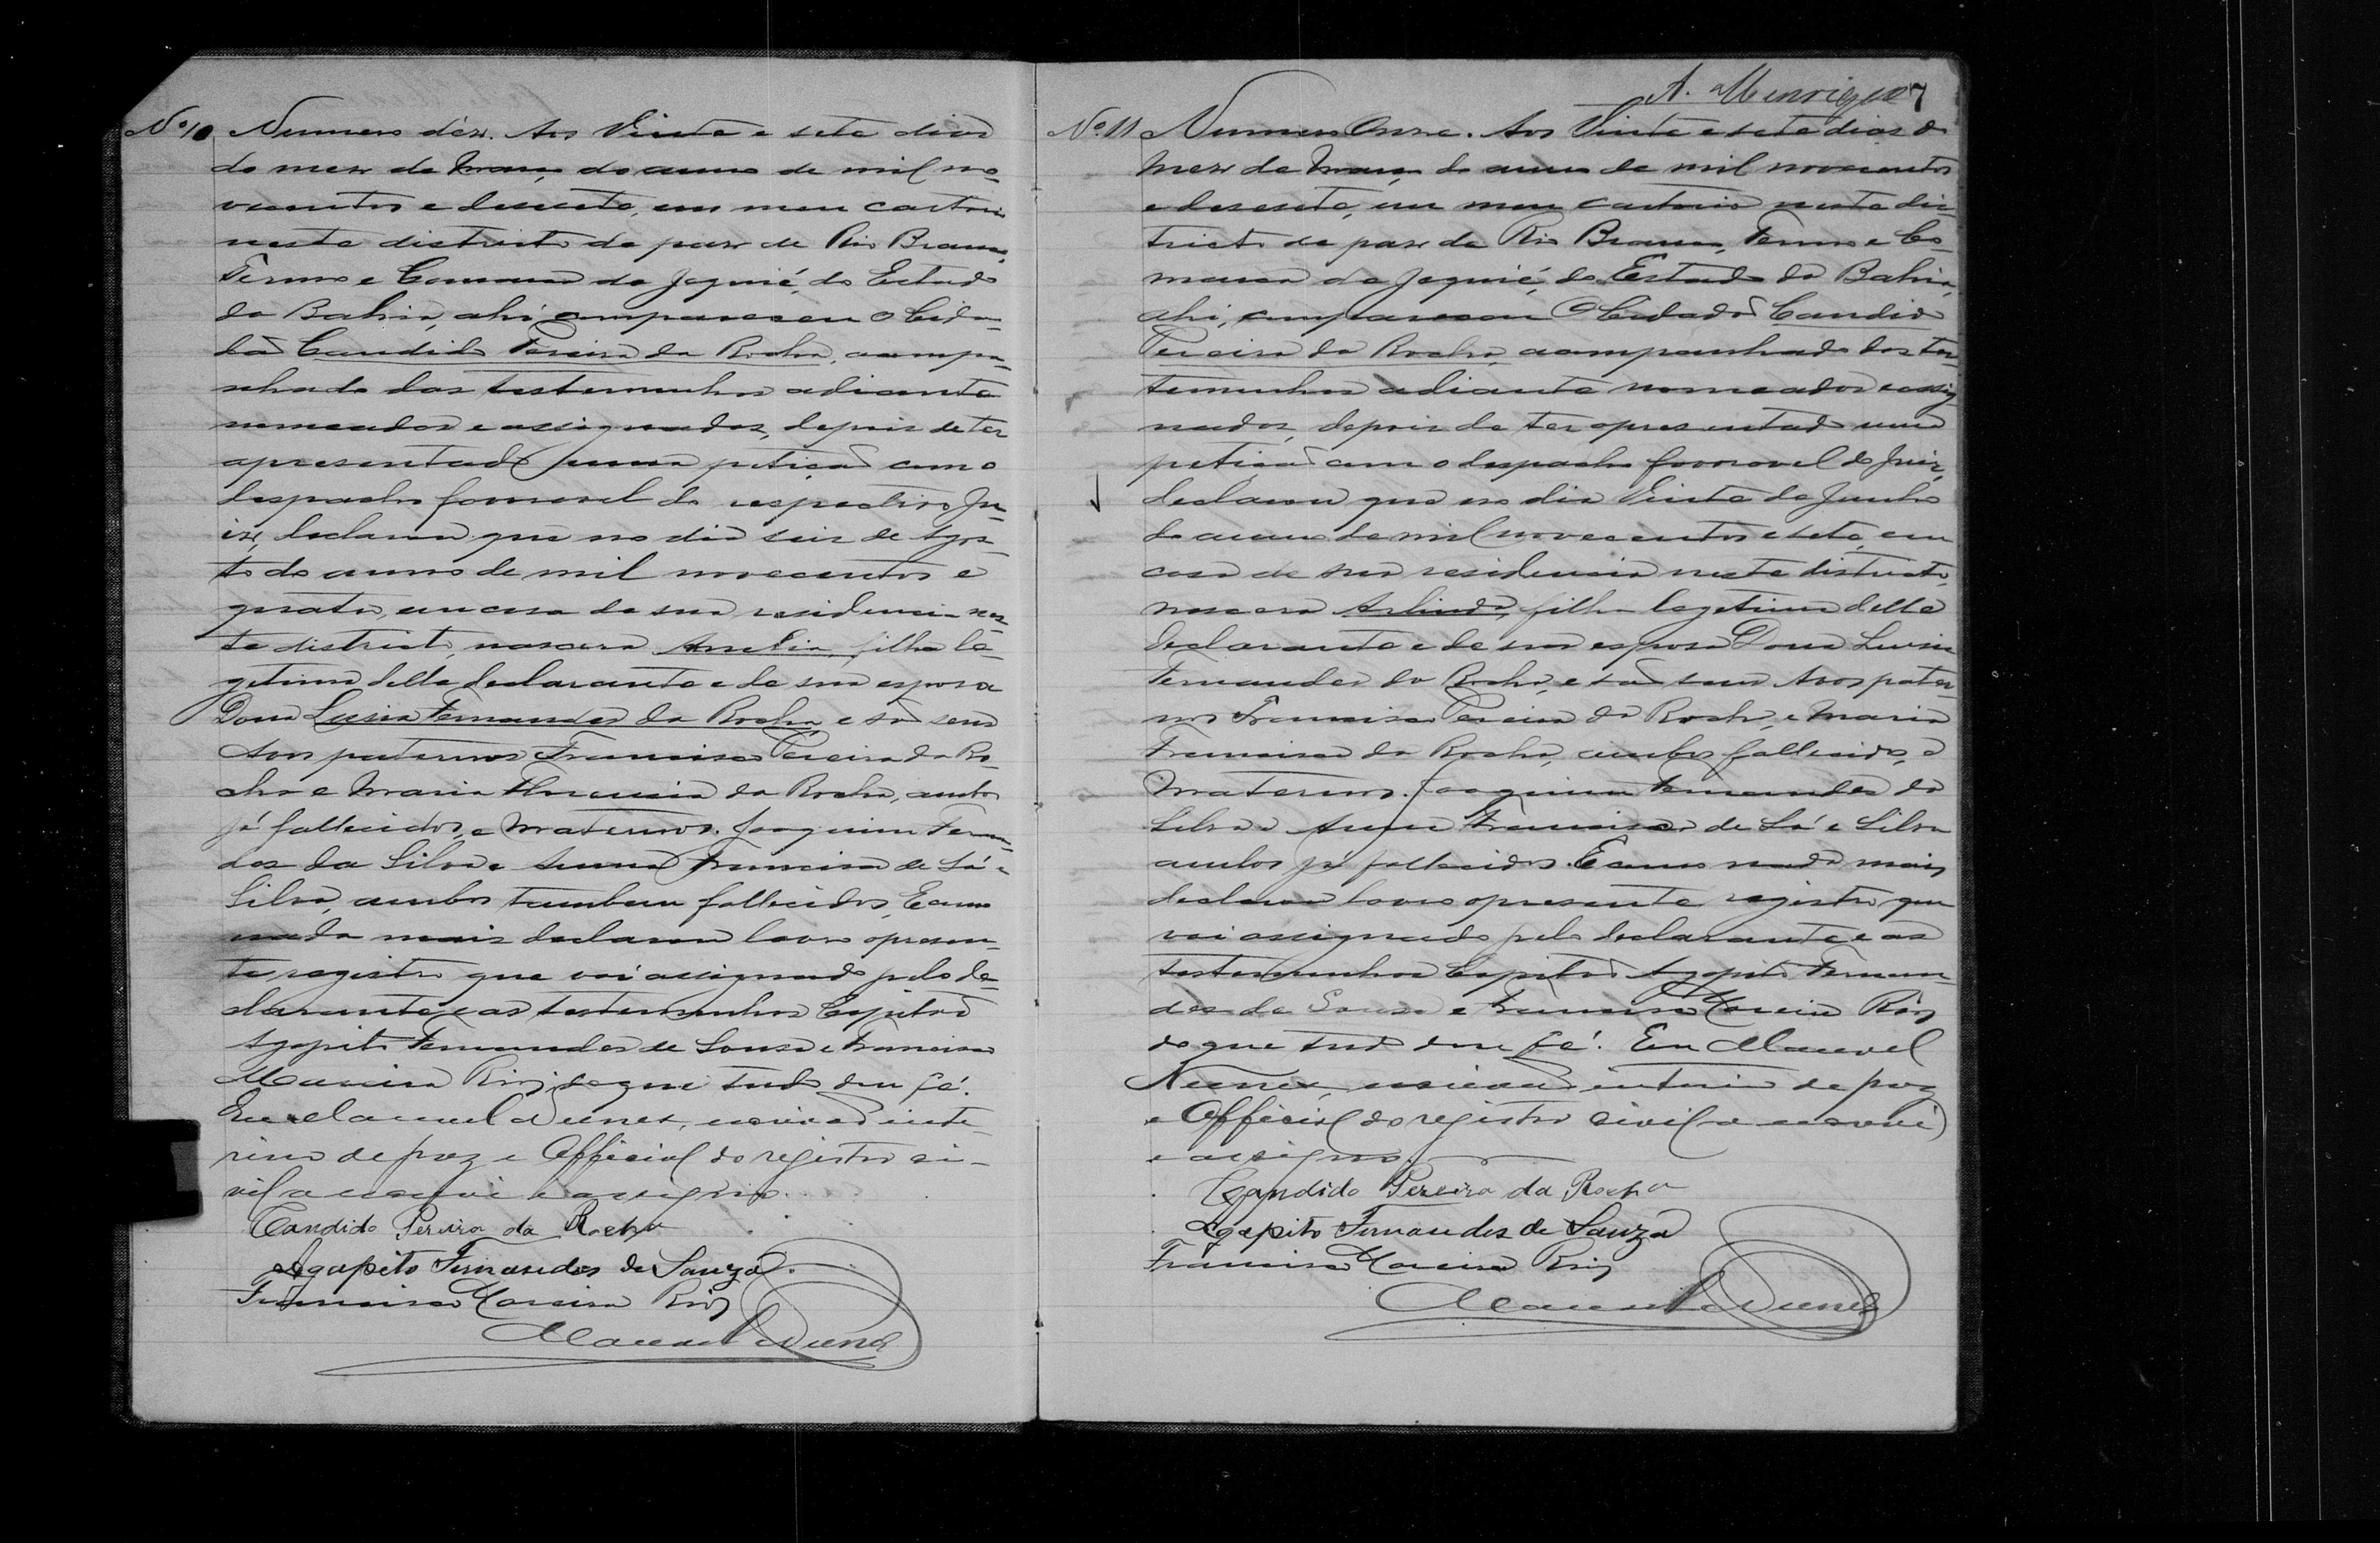 Nº 10 Numero déz. Aos Vinte e sete dias
do mez de Março do anno de mil no-
vecentos e desesete, em meu cartorio
neste districto de paz de Rio Branco,
Termo e Comarca de Jequié, do Estado
da Bahia, ahi compareceu o Cida-
dão Candido Pereira da Rocha, acompa-
nhado das testemunhas adiante
nomeadas e assignadas, depois de ter
apresentado uma petição com o
despacho favoravel do respectivo Ju-
iz, declarou que no dia seis de Agos-
to do anno de mil novecentos e
quatro, em casa de sua residencia nes-
te districto, nascera Amelia, filha le-
getima delle declarante e de sua esposa
Dona Lusia Fernandes da Rocha, e são seus
Avos paternos Francisco Pereira da Ro-
cha e Maria da Rocha, ambos
já fallecidos, e maternos. Joaquim Fernan-
des da Silva e Anna Francisca de Sá e
Silva, ambos tambem fallecidos, E como
nada mais declarou lavro o presen-
te registro que vai assignado pelo de-
clarante e as testemunhas Capitão
Agapito Fernandes de Sousa e Francisco
Moreira Rios, do que tudo dou fé.
Eu Manuel Nunes, escrivão inte-
rino de paz e Official do registro ci-
vil a escrevi e assigno.
Candido Pereira da Rocha
Agapito Fernandes de Souza.
Francisco Moreira Rios
Manuel Nunes
A. Henriques 7
Nº 11 Numero Onze. Aos Vinte e sete dias do
mez de Março do anno de mil novecentos
e desesete, em meu cartorio neste dis-
tricto de paz de Rio Branco, Termo e Co-
marca de Jequié, do Estado da Bahia,
ahi, compareceu o Cidadão Candido
Pereira da Rocha, acompanhado das tes-
temunhas adiante nomeadas e assig-
nadas, depois de ter apresentado uma
petição com o despacho favoravel do Juiz,
declarou que no dia Vinte de Junho
do anno de mil novecentos e sete, em
casa de sua residencia neste districto,
nascera Arlinda, filha legetima delle
declarante e de sua esposa Dona Lusia
Fernandes da Rocha, e são seus Avos pater-
nos Francisco Pereira da Rocha, e Maria
Francisca da Rocha, ambos fallecidos, e
Maternos. Joaquim Fernandes da
Silva e Anna Francisca de Sá e Silva
ambos já fallecidos. E como nada mais
declarou lavro o presente registro que
vai assignado pelo declarante e as
testemunhas Capitão Agapito Fernan-
des de Sousa e Francisco Moreira Rios
do que tudo dou fé. Eu Manuel
Nunes, escrivão interino de paz
e Official do registro civil a escrevi
e assigno.
Candido Pereira da Rocha
Agapito Fernandes de Souza
Francisco Moreira Rios
Manuel Nunes